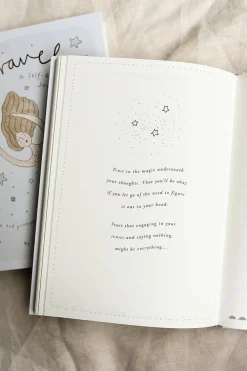 ravel
A Self-
Trust in the magic underneath
your thoughts. That you'll be okay
if you let go of the need to figure
it out in your head.
Trust that engaging in your
senses and saying nothing,
might be everything...